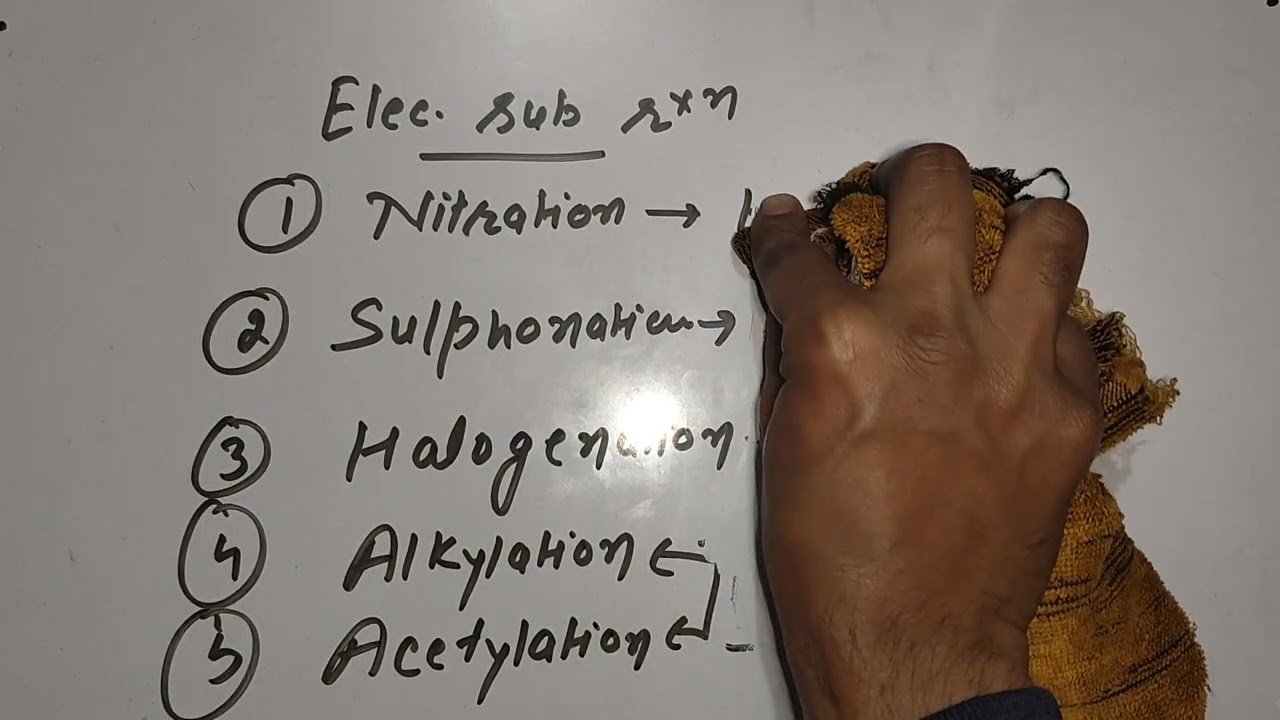 Elec. sub rxn
① Nitration →
② Sulphonation →
③ Halogenation
④ Alkylation ←
⑤ Acetylation ←